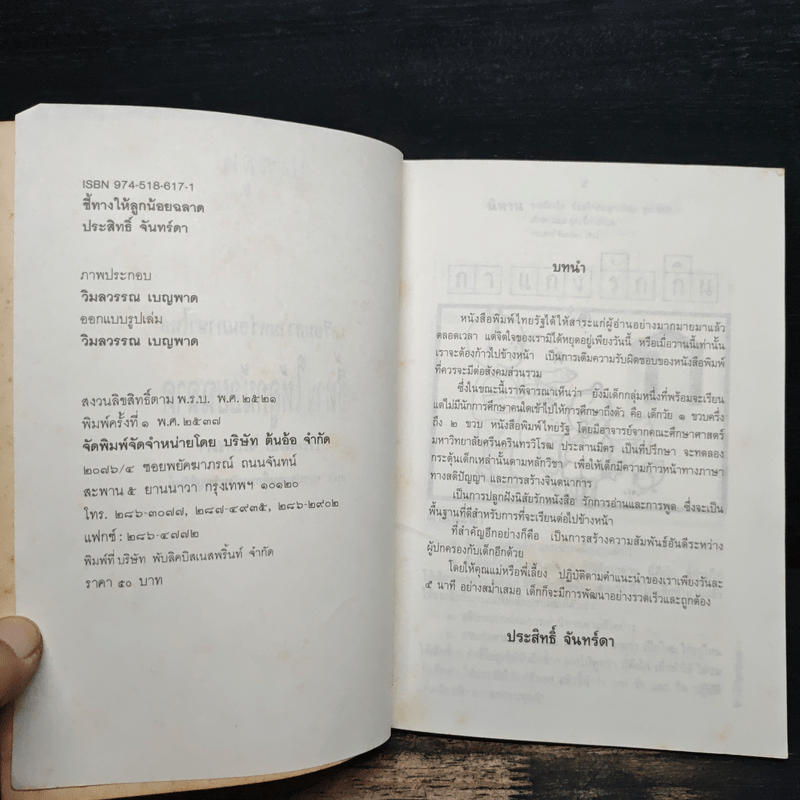 ISBN 974-518-617-1
ชี้ทางให้ลูกน้อยฉลาด
ประสิทธิ์ จันทร์ดา
ภาพประกอบ
วิมลวรรณ เบญพาด
ออกแบบรูปเล่ม
วิมลวรรณ เบญพาด
สงวนลิขสิทธิ์ตาม พ.ร.บ. พ.ศ. ๒๕๒๑
พิมพ์ครั้งที่ ๑ พ.ศ. ๒๕๓๗
จัดพิมพ์จัดจำหน่ายโดย บริษัท ต้นอ้อ จำกัด
๒๐๗๖/๔ ซอยพยัคฆาภรณ์ ถนนจันทน์
สะพาน ๕ ยานนาวา กรุงเทพฯ ๑๐๑๒๐
โทร. ๒๘๖-๓๐๗๗, ๒๘๗-๔๙๓๕, ๒๘๖-๒๙๐๒
แฟกซ์ : ๒๘๖-๔๗๗๒
พิมพ์ที่ บริษัท พับลิคบิสเนสพริ้นท์ จำกัด
ราคา ๕๐ บาท
บทนำ
หนังสือพิมพ์ไทยรัฐได้ให้สาระแก่ผู้อ่านอย่างมากมายมาแล้ว
ตลอดเวลา แต่จิตใจของเรามิได้หยุดอยู่เพียงวันนี้ หรือเมื่อวานนี้เท่านั้น
เราจะต้องก้าวไปข้างหน้า เป็นการเติมความรับผิดชอบของหนังสือพิมพ์
ที่ควรจะมีต่อสังคมส่วนรวม
ซึ่งในขณะนี้เราพิจารณาเห็นว่า ยังมีเด็กกลุ่มหนึ่งที่พร้อมจะเรียน
แต่ไม่มีนักการศึกษาคนใดเข้าไปให้การศึกษาถึงตัว คือ เด็กวัย ๑ ขวบครึ่ง
ถึง ๒ ขวบ หนังสือพิมพ์ไทยรัฐ โดยมีอาจารย์จากคณะศึกษาศาสตร์
มหาวิทยาลัยศรีนครินทรวิโรฒ ประสานมิตร เป็นที่ปรึกษา จะทดลอง
กระตุ้นเด็กเหล่านั้นตามหลักวิชา เพื่อให้เด็กมีความก้าวหน้าทางภาษา
ทางสติปัญญา และการสร้างจินตนาการ
เป็นการปลูกฝังนิสัยรักหนังสือ รักการอ่านและการพูด ซึ่งจะเป็น
พื้นฐานที่ดีสำหรับการที่จะเรียนต่อไปข้างหน้า
ที่สำคัญอีกอย่างก็คือ เป็นการสร้างความสัมพันธ์อันดีระหว่าง
ผู้ปกครองกับเด็กอีกด้วย
โดยให้คุณแม่หรือพี่เลี้ยง ปฏิบัติตามคำแนะนำของเราเพียงวันละ
๕ นาที อย่างสม่ำเสมอ เด็กก็จะมีการพัฒนาอย่างรวดเร็วและถูกต้อง
ประสิทธิ์ จันทร์ดา